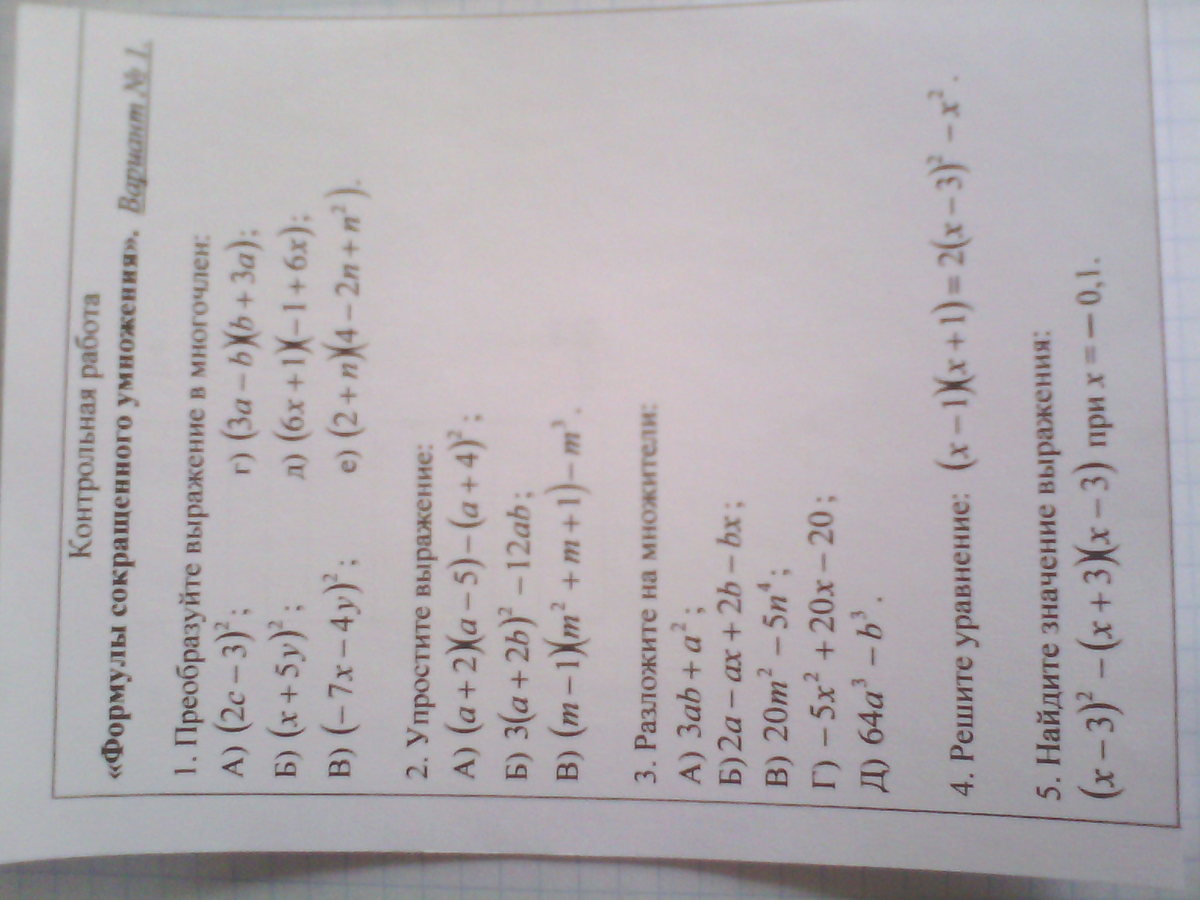 Контрольная работа
«Формулы сокращенного умножения». Вариант № 1.
1. Преобразуйте выражение в многочлен:
А) (2c − 3)²; г) (3a − b)(b + 3a);
Б) (x + 5y)²; д) (6x + 1)(−1 + 6x);
В) (− 7x − 4y)²; е) (2 + n)(4 − 2n + n²).
2. Упростите выражение:
А) (a + 2)(a − 5) − (a + 4)²;
Б) 3(a + 2b)² − 12ab;
В) (m − 1)(m² + m + 1) − m³.
3. Разложите на множители:
А) 3ab + a²;
Б) 2a − ax + 2b − bx;
В) 20m² − 5n⁴;
Г) − 5x² + 20x − 20;
Д) 64a³ − b³.
4. Решите уравнение: (x − 1)(x + 1) = 2(x − 3)² − x².
5. Найдите значение выражения:
(x − 3)² − (x + 3)(x − 3) при x = − 0,1.